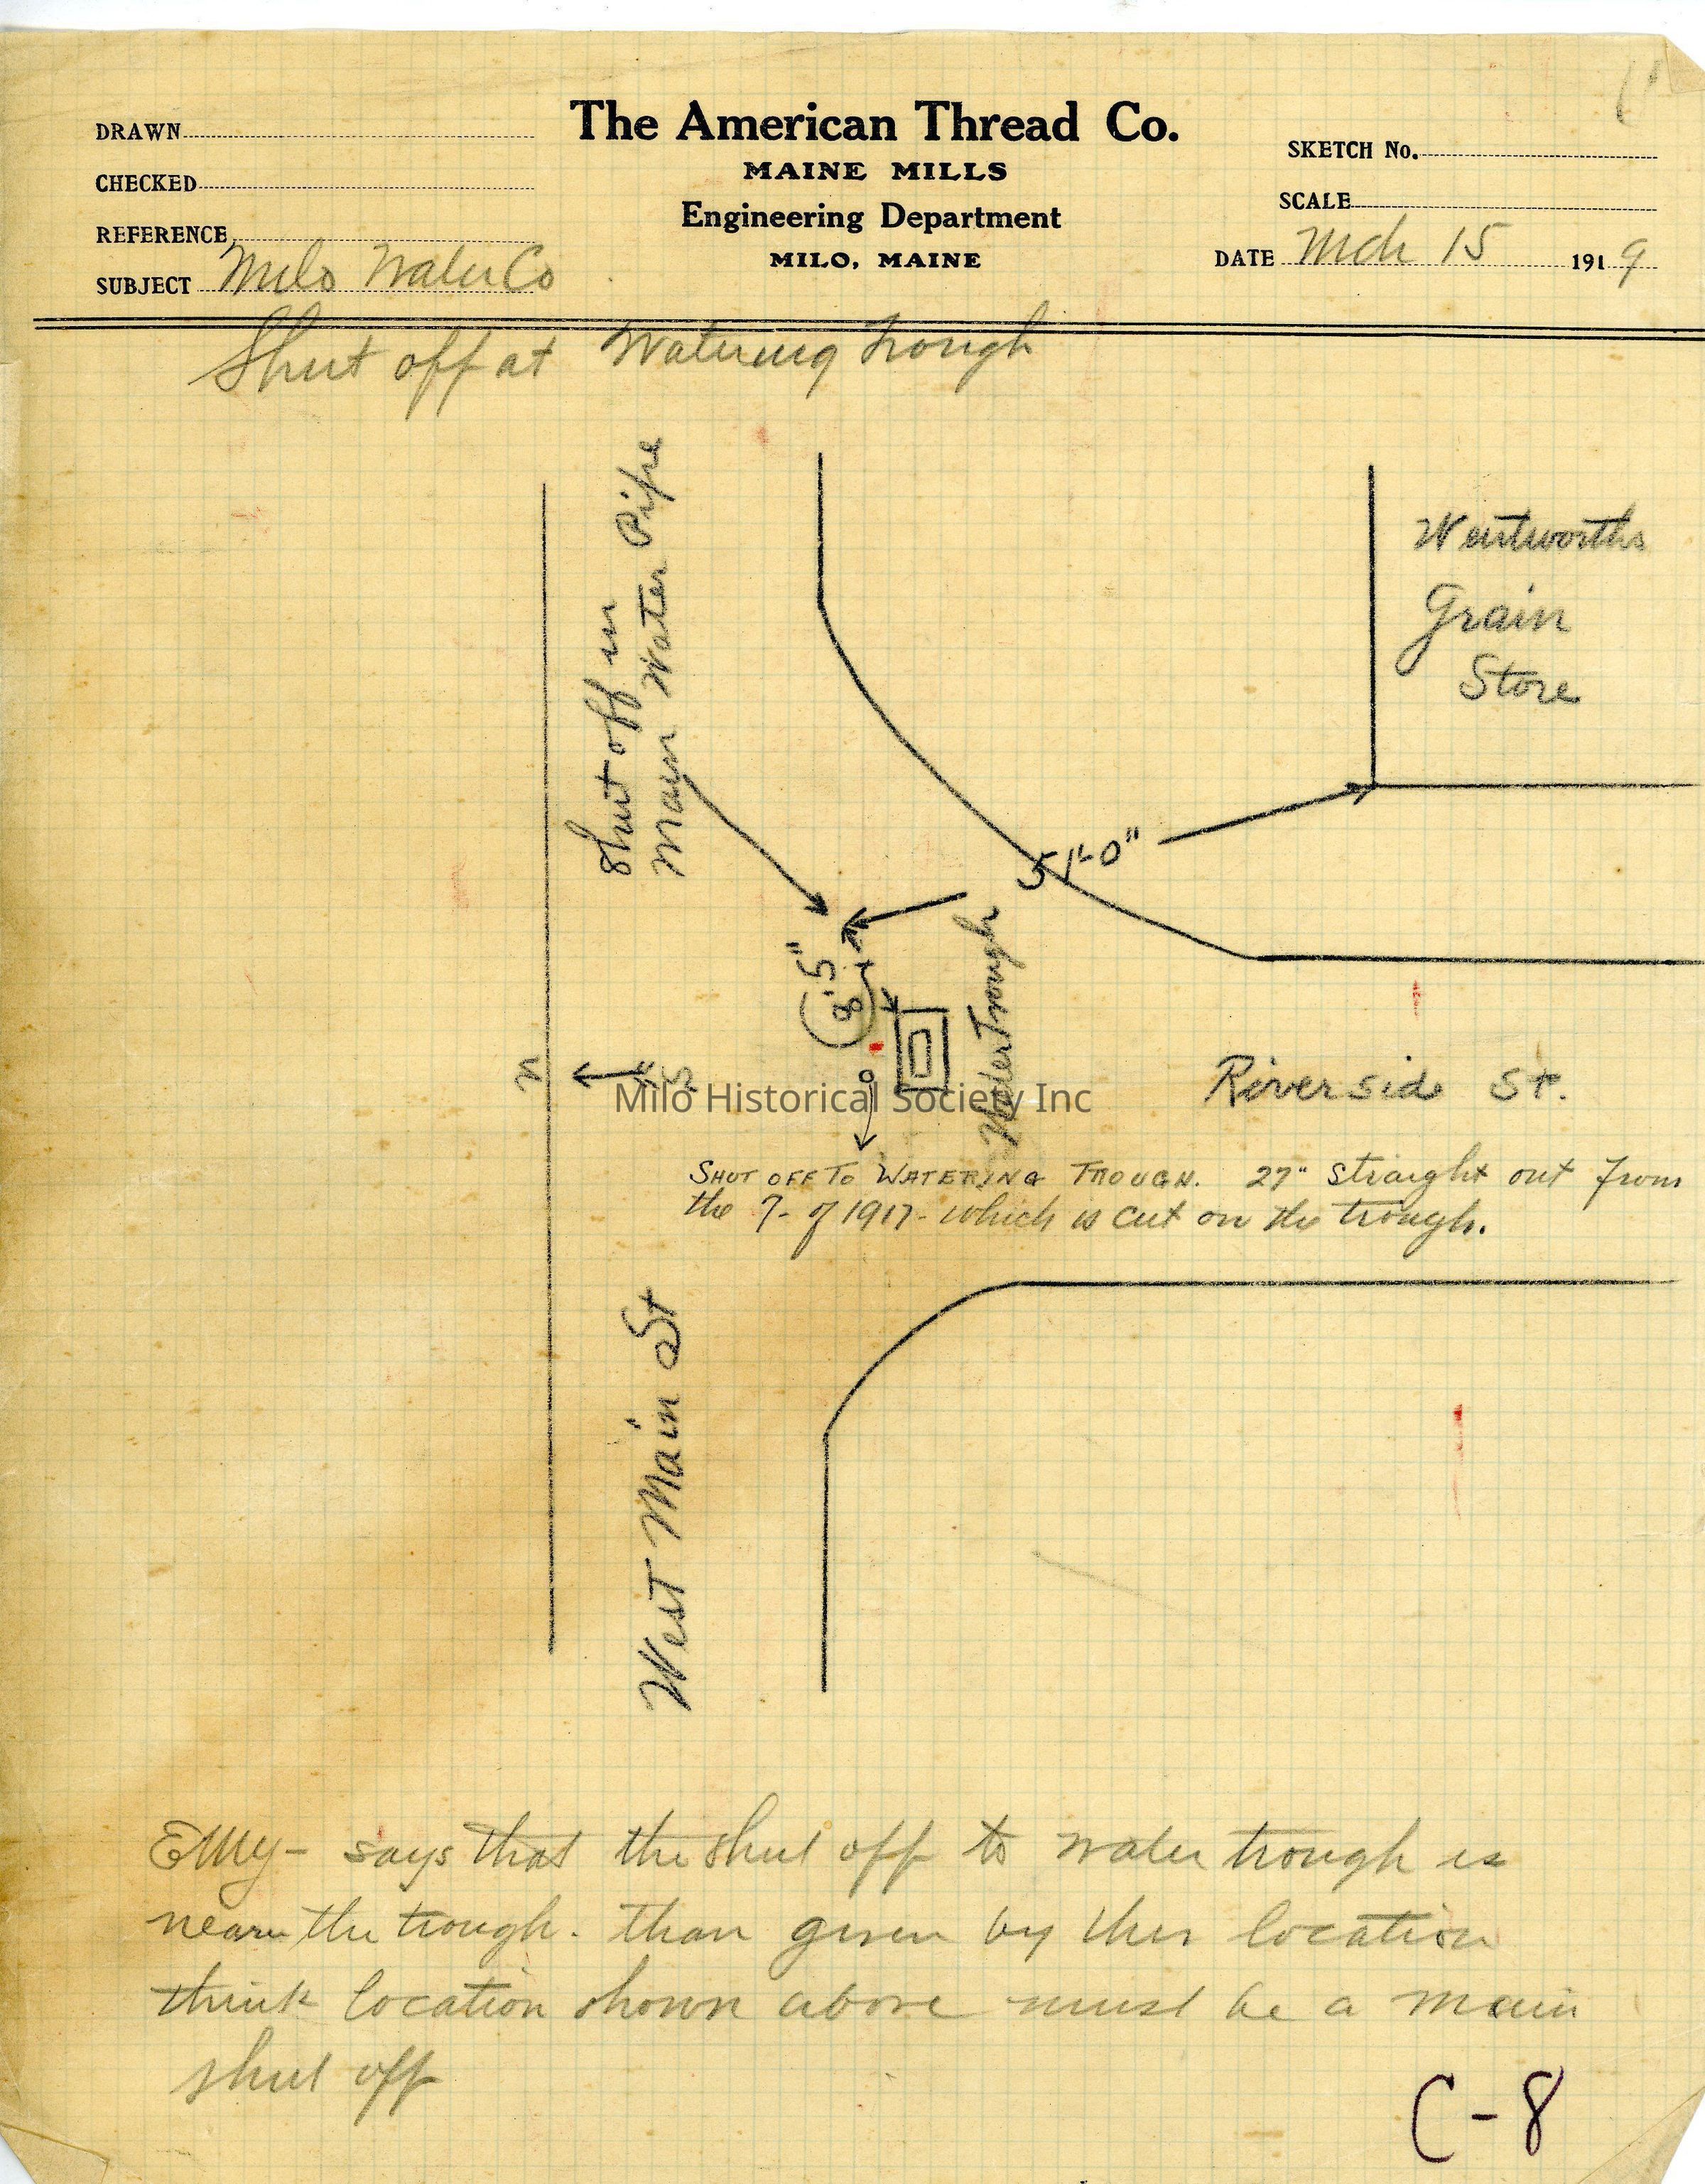 The American Thread Co.
MAINE MILLS
Engineering Department
MILO, MAINE
DRAWN
CHECKED
REFERENCE
SUBJECT Milo Water Co
SKETCH No.
SCALE
DATE Mch 15 1919
Shut off at Watering Trough
Shut off in
Main Water Pipe
Wentworths
Grain
Store
51'-0"
8'.5"
Water Trough
n
S
Riverside St.
Milo Historical Society Inc
SHUT OFF TO WATERING TROUGH. 27" straight out from
the 7- of 1917- which is cut on the trough.
West Main St
says that the shut off to water trough is
nearer the trough. than given by this location
think location shown above must be a main
shut off
C-8